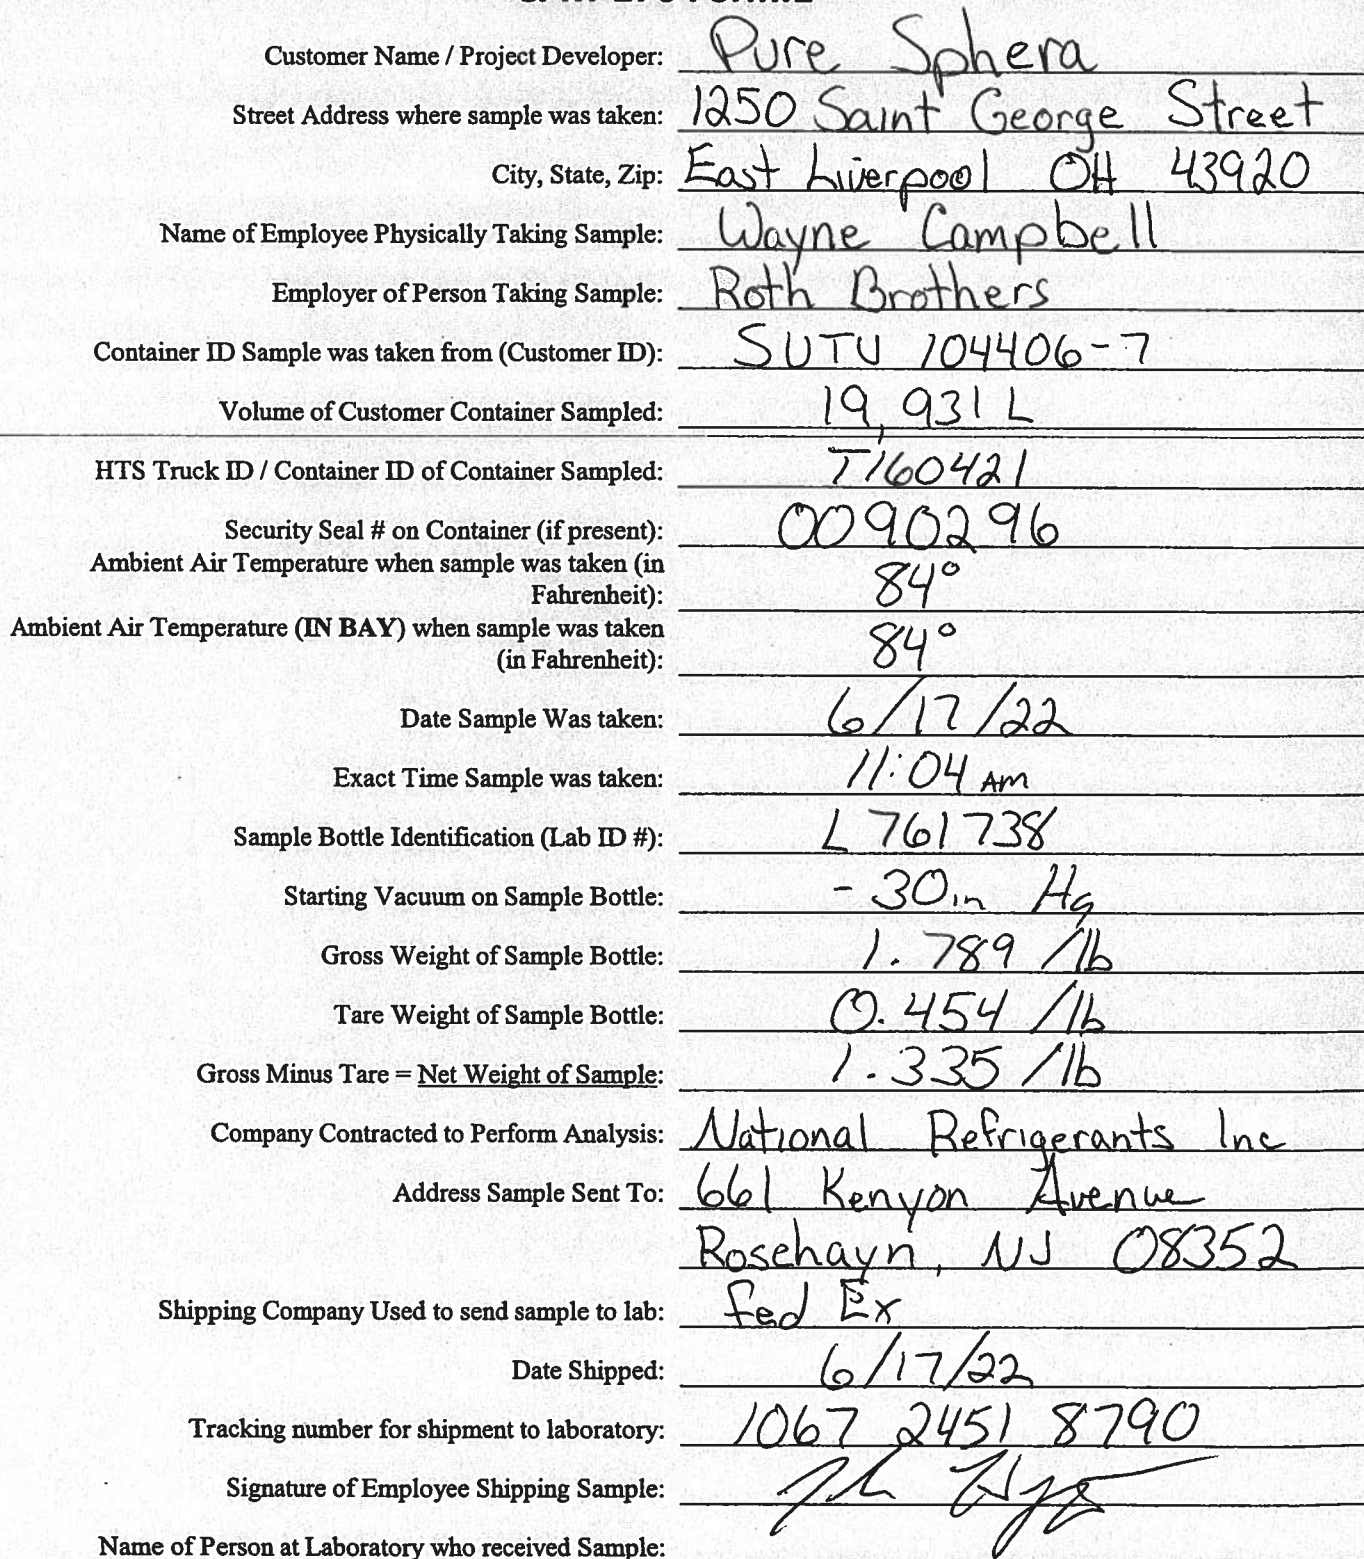 Customer Name / Project Developer: Pure Sphera
Street Address where sample was taken: 1250 Saint George Street
City, State, Zip: East Liverpool OH 43920
Name of Employee Physically Taking Sample: Wayne Campbell
Employer of Person Taking Sample: Roth Brothers
Container ID Sample was taken from (Customer ID): SUTU 104406-7
Volume of Customer Container Sampled: 19,931 L
HTS Truck ID / Container ID of Container Sampled: T160421
Security Seal # on Container (if present): 0090296
Ambient Air Temperature when sample was taken (in
Fahrenheit): 84°
Ambient Air Temperature (IN BAY) when sample was taken
(in Fahrenheit): 84°
Date Sample Was taken: 6/17/22
Exact Time Sample was taken: 11:04 AM
Sample Bottle Identification (Lab ID #): L 761738
Starting Vacuum on Sample Bottle: - 30in Hg
Gross Weight of Sample Bottle: 1.789 /lb
Tare Weight of Sample Bottle: 0.454 /lb
Gross Minus Tare = Net Weight of Sample: 1.335 /lb
Company Contracted to Perform Analysis: National Refrigerants Inc
Address Sample Sent To: 661 Kenyon Avenue
Rosehayn, NJ 08352
Shipping Company Used to send sample to lab: Fed Ex
Date Shipped: 6/17/22
Tracking number for shipment to laboratory: 1067 2451 8790
Signature of Employee Shipping Sample:
Name of Person at Laboratory who received Sample: